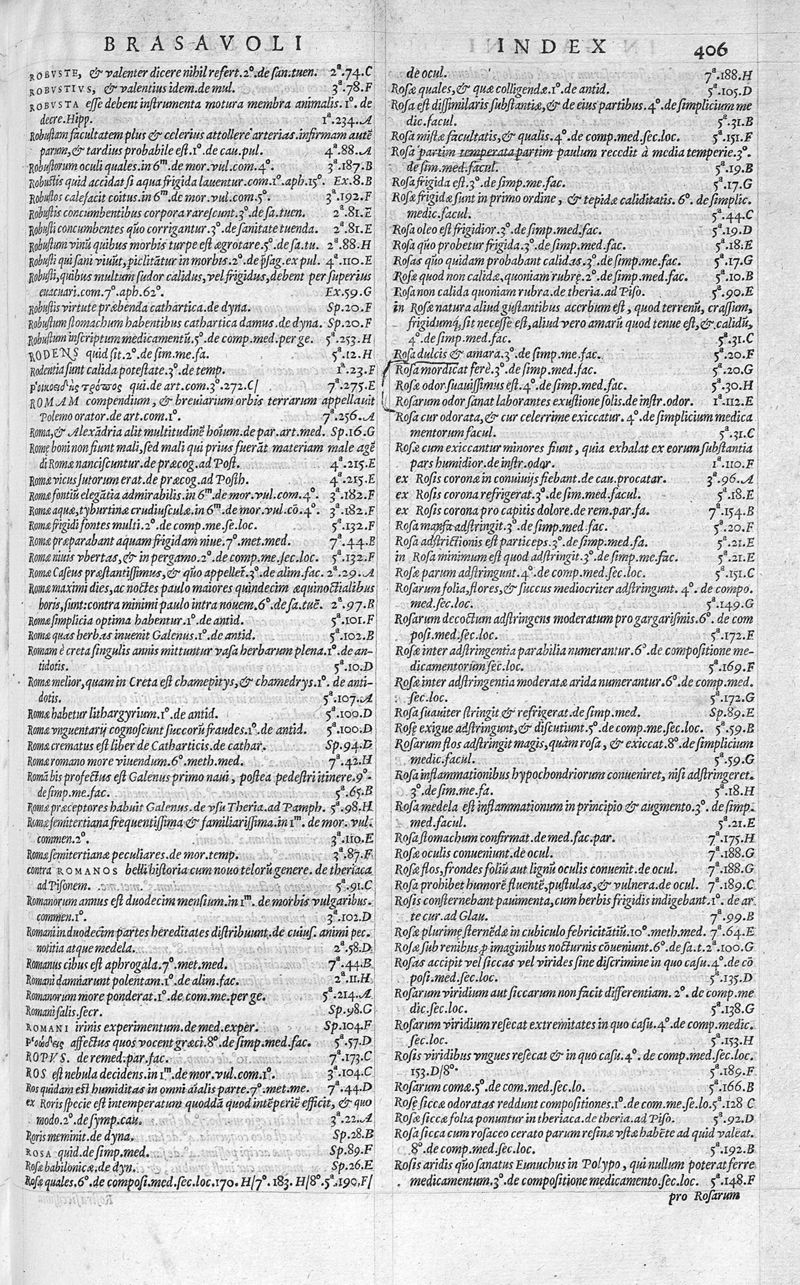 BRASAVOLI
ROBVSTE, & valenter dicere nihil refert.2°.de san.tuen. 2ª.74.C
ROBVSTIVS, & valentius idem.de mul. 3ª.78.F
ROBVSTA esse debent instrumenta motura membra animalis.1°. de
decre.Hipp. 1ª.234.A
Robustam facultatem plus & celerius attollere arterias.infirmam autē
parum,& tardius probabile est.1°.de cau.pul. 4ª.88.A
Robustiorum oculi quales.in 6ᵐ.de mor.vul.com.4°. 3ª.187.B
Robustis quid accidat si aqua frigida lauentur.com.1°.aph.15°. Ex.8.B
Robustos calefacit coitus.in 6ᵐ.de mor.vul.com.5°. 3ª.192.F
Robustis concumbentibus corpora rarescunt.3°.de sa.tuen. 2ª.81.E
Robusti concumbentes quō corrigantur.3°.de sanitate tuenda. 2ª.81.E
Robustum vinū quibus morbis turpe est ægrotare.5°.de sa.tu. 2ª.88.H
Robusti qui sani viuūt, piclitātur in morbis.2°.de p̄sag.ex pul. 4ª.110.E
Robusti, quibus multum sudor calidus, vel frigidus, debent per superius
euacuari.com.7°.aph.62°. Ex.59.G
Robustis virtute præbenda cathartica.de dyna. Sp.20.F
Robustum stomachum habentibus cathartica damus.de dyna. Sp.20.F
Robustum inscriptum medicamentū.5°.de comp.med.per ge. 5ª.253.H
RODENS quid sit.2°.de sim.me.fa. 5ª.12.H
Rodentia sunt calida potestate.3°.de temp. 1ª.23.F
qui.de art.com.3°.272.C/ 7ª.275.E
ROMAM compendium, & breuiarium orbis terrarum appellauit
Polemo orator.de art.com.1°. 7ª.256.A
Roma,& Alexādria alit multitudinē hoīum.de par.art.med. Sp.16.G
Romę boni non fiunt mali,sed mali qui prius fuerāt materiam male agē
di Romæ nanciscuntur.de præcog.ad Post. 4ª.215.E
Romæ vicus Iutorum erat.de præcog.ad Posth. 4ª.215.E
Romæ fontiū elegātia admirabilis.in 6ᵐ.de mor.vul.com.4°. 3ª.182.F
Romæ aquæ,tyburtinæ crudiusculæ.in 6ᵐ.de mor.vul.cō.4°. 3ª.182.F
Romæ frigidi fontes multi.2°.de comp.me.se.loc. 5ª.132.F
Romæ præparabant aquam frigidam niue.7°.met.med. 7ª.44.B
Romæ niuis vbertas,& in pergamo.2°.de comp.me.sec.loc. 5ª.132.F
Romæ Caseus præstantissimus,& quō appellet̄.3°.de alim.fac. 2ª.29.A
Romæ maximi dies,ac noctes paulo maiores quindecim æquinoctialibus
horis,sunt:contra minimi paulo intra nouem.6°.de sa.tuē. 2ª.97.B
Romæ simplicia optima habentur.1°.de antid. 5ª.101.F
Romæ quas herbas inuenit Galenus.1°.de antid. 5ª.102.B
Romam è creta singulis annis mittuntur vasa herbarum plena.1°.de an-
tidotis. 5ª.10.D
Romæ melior,quam in Creta est chamepitys,& chamedrys.1°. de anti-
dotis. 5ª.107.A
Romæ habetur lithargyrium.1°.de antid. 5ª.100.D
Romæ vnguentarij cognoscunt succorū fraudes.1°.de antid. 5ª.100.D
Romæ crematus est liber de Catharticis.de cathar. Sp.94.D
Romæ romano more viuendum.6°.meth.med. 7ª.42.H
Romā bis profectus est Galenus primo naui, postea pedestri itinere.9°
de simp.me.fac. 5ª.65.B
Romæ præceptores habuit Galenus.de vsu Theria.ad Pamph. 5ª.98.H
Romæ semitertiana frequentissima & familiarissima.in 1ᵐ.de mor. vul.
commen.2°. 3ª.110.E
Romæ semitertianæ peculiares.de mor.temp. 3ª.87.F
contra ROMANOS belli historia cum nouo telorū genere. de theriaca
ad Pisonem. 5ª.91.C
Romanorum annus est duodecim mensium.in 1ᵐ.de morbis vulgaribus.
commen.1°. 3ª.102.D
Romani in duodecim partes hereditates distribuunt.de cuius. animi pec.
notitia atque medela. 2ª.58.D
Romanus cibus est aphrogala.7°.met.med. 7ª.44.B
Romani damnarunt polentam.1°.de alim.fac. 2ª.11.H
Romanorum more ponderat.1°.de com.me.per ge. 5ª.214.A
Romani salis secr. Sp.98.G
ROMANI irinis experimentum.de med.exper. Sp.104.F
affectus quos vocent græci.8°.de simp.med.fac. 5ª.57.D
ROPVS. de remed.par.fac. 7ª.173.C
ROS est nebula decidens.in 1ᵐ.de mor.vul.com.1°. 3ª.104.C
Ros quidam est humiditas in omni aīalis parte.7°.met.me. 7ª.44.D
ex Roris specie est intemperatum quoddā quod intēperiē efficit, & quo
modo.2°.de symp.cau. 3ª.22.A
Roris meminit.de dyna. Sp.28.B
ROSA quid.de simp.med. Sp.89.F
Rosæ babilonicæ.de dyn. Sp.26.E
Rosæ quales.6°.de composi.med.sec.loc.170.H/7°.183.H/8°.5ª.190.F/
INDEX 406
de ocul. 7ª.188.H
Rosæ quales,& quæ colligendæ.1°.de antid. 5ª.105.D
Rosa est dissimilaris substantiæ,& de eius partibus.4°.de simplicium me
dic.facul. 5ª.31.B
Rosæ mistæ facultatis,& qualis.4°.de comp.med.sec.loc. 5ª.151.F
Rosa partim temperata partim paulum recedit à media temperie.3°.
de sim.med.facul. 5ª.19.B
Rosa frigida est.3°.de simp.me.fac. 5ª.17.G
Rosæ frigidæ sunt in primo ordine, & tepidæ caliditatis. 6°.de simplic.
medic.facul. 5ª.44.C
Rosa oleo est frigidior.3°.de simp.med.fac. 5ª.19.D
Rosa quō probetur frigida.3°.de simp.med.fac. 5ª.18.E
Rosas quō quidam probabant calidas.3°.de simp.me.fac. 5ª.17.G
Rosæ quod non calidæ,quoniam rubrę.2°.de simp.med.fac. 5ª.10.B
Rosa non calida quoniam rubra.de theria.ad Piso. 5ª.90.E
in Rosæ natura aliud gustantibus acerbum est, quod terrenū, crassum,
frigidumq́;sit necesse est,aliud vero amarū quod tenue est,& calidū,
4°.de simp.med.fac. 5ª.31.C
Rosa dulcis & amara.3°.de simp.me.fac. 5ª.20.F
Rosa mordicat ferè.3°.de simp.med.fac. 5ª.20.G
Rosæ odor suauissimus est.4°.de simp.med.fac. 5ª.30.H
Rosarum odor sanat laborantes exustione folis.de instr.odor. 1ª.112.E
Rosa cur odorata,& cur celerrime exiccatur. 4°.de simplicium medica
mentorum facul. 5ª.31.C
Rosæ cum exiccantur minores fiunt, quia exhalat ex eorum substantia
pars humidior.de instr.odor. 1ª.110.F
ex Rosis corona in conuiuijs fiebant.de cau.procatar. 3ª.96.A
ex Rosis corona refrigerat.3°.de sim.med.facul. 5ª.18.E
ex Rosis corona pro capitis dolore.de rem.par.fa. 7ª.154.B
Rosa mansa adstringit.3°.de simp.med.fac. 5ª.20.F
Rosa adstrictionis est particeps.3°.de simp.med.fa. 5ª.21.E
in Rosa minimum est quod adstringit.3°.de simp.me.fac. 5ª.21.E
Rosæ parum adstringunt.4°.de comp.med.sec.loc. 5ª.151.C
Rosarum folia,flores,& succus mediocriter adstringunt. 4°. de compo.
med.sec.loc. 5ª.149.G
Rosarum decoctum adstringens moderatum pro gargarismis.6°. de com
posi.med.sec.loc. 5ª.172.E
Rosæ inter adstringentia parabilia numerantur.6°.de compositione me-
dicamentorum sec.loc. 5ª.169.F
Rosæ inter adstringentia moderatæ arida numerantur.6°.de comp.med.
sec.loc. 5ª.172.G
Rosa suauiter stringit & refrigerat.de simp.med. Sp.89.E
Rosę exigue adstringunt,& discutiunt.5°.de comp.me.sec.loc. 5ª.59.B
Rosarum flos adstringit magis,quàm rosa, & exiccat.8°.de simplicium
medic.facul. 5ª.59.G
Rosa inflammationibus hypochondriorum conueniret, nisi adstringeret.
3°.de sim.me.fa. 5ª.18.H
Rosa medela est inflammationum in principio & augmento.3°. de simp.
med.facul. 5ª.21.E
Rosa stomachum confirmat.de med.fac.par. 7ª.175.H
Rosæ oculis conueniunt.de ocul. 7ª.188.G
Rosæ flos,frondes foliū aut lignū oculis conuenit.de ocul. 7ª.188.G
Rosa prohibet humorē fluentē,pustulas,& vulnera.de ocul. 7ª.189.C
Rosis consternebant pauimenta,cum herbis frigidis indigebant.1°. de ar
te cur.ad Glau. 7ª.99.B
Rosæ plurimę sternēdæ in cubiculo febricitātiū.10°.meth.med. 7ª.64.E
Rosæ sub renibus p̱ imaginibus nocturnis cōueniunt.6°.de sa.t.2ª.100.G
Rosas accipit vel siccas vel virides sine discrimine in quo casu.4°.de cō
posi.med.sec.loc. 5ª.135.D
Rosarum viridium aut siccarum non facit differentiam. 2°. de comp.me
dic.sec.loc. 5ª.138.G
Rosarum viridium resecat extremitates in quo casu.4°.de comp.medic.
sec.loc. 5ª.153.H
Rosis viridibus vngues resecat & in quo casu.4°. de comp.med.sec.loc.
153.D/8°. 5ª.189.F
Rosarum comæ.5°.de com.med.sec.lo. 5ª.166.B
Rosę siccæ odoratas reddunt compositiones.1°.de com.me.se.lo.5ª.128 C
Rosæ siccæ folia ponuntur in theriaca.de theria.ad Piso. 5ª.92.D
Rosa sicca cum rosaceo cerato parum resinæ vstæ habēte ad quid valeat.
8°.de comp.med.sec.loc. 5ª.192.B
Rosis aridis quō sanatus Eunuchus in Polypo, qui nullum poterat ferre
medicamentum.3°.de compositione medicamento.sec.loc. 5ª.148.F
pro Rosarum